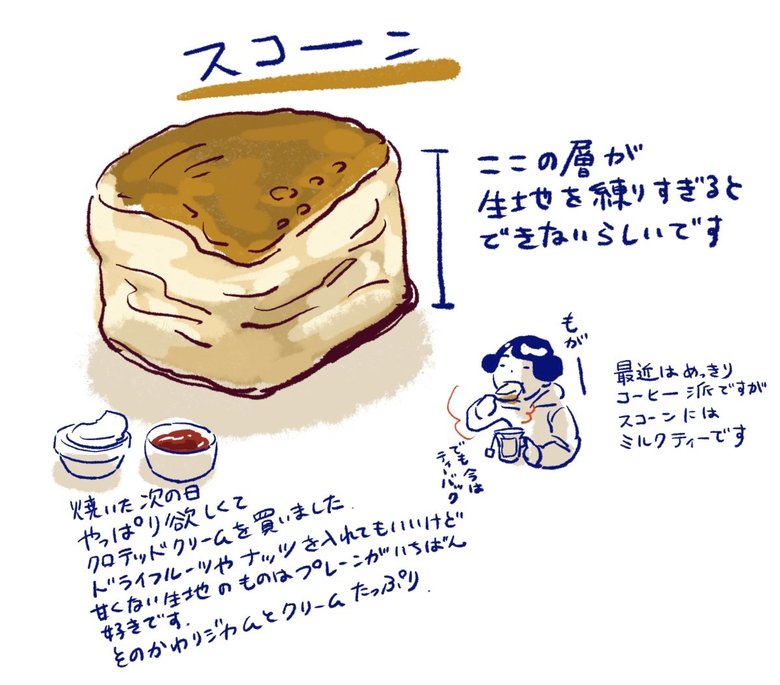 スコーン
ここの層が
生地を練りすぎると
できないらしいです
もがー
最近はめっきり
コーヒー派ですが
スコーンには
ミルクティーです
でも今は
ティーバッグ
焼いた次の日
やっぱり欲しくて
クロテッドクリームを買いました.
ドライフルーツやナッツを入れてもいいけど
甘くない生地のものはプレーンがいちばん
好きです.
そのかわりジャムとクリームたっぷり.